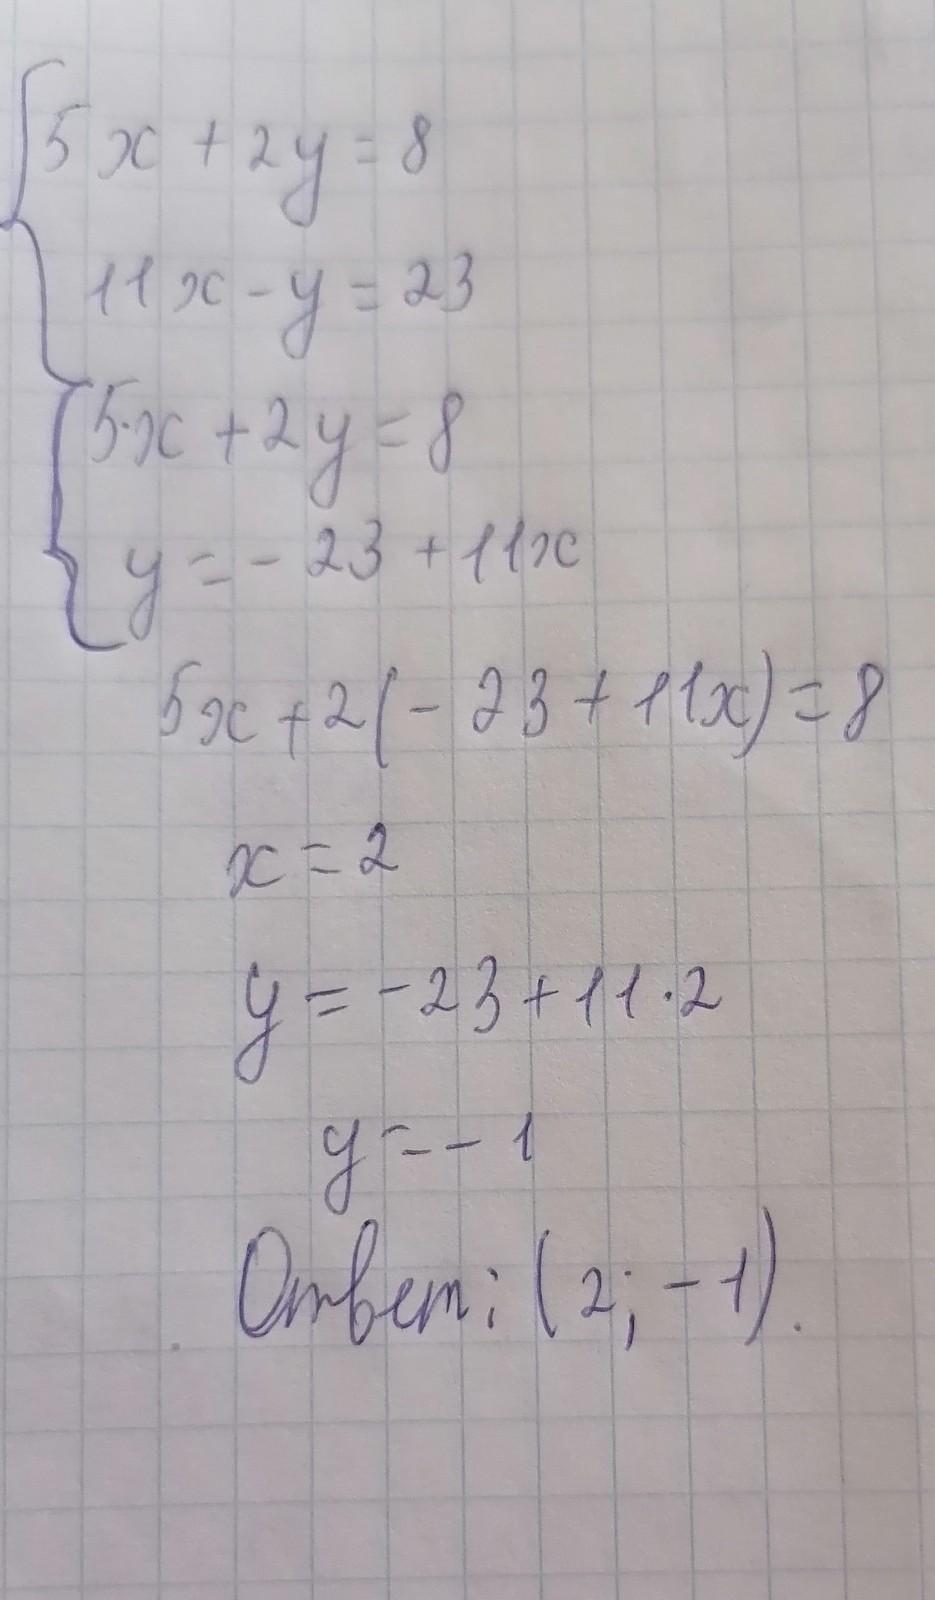 5x + 2y = 8
11x - y = 23
5x + 2y = 8
y = - 23 + 11x
5x + 2(- 23 + 11x) = 8
x = 2
y = -23 + 11 · 2
y = - 1
Ответ: (2; -1).